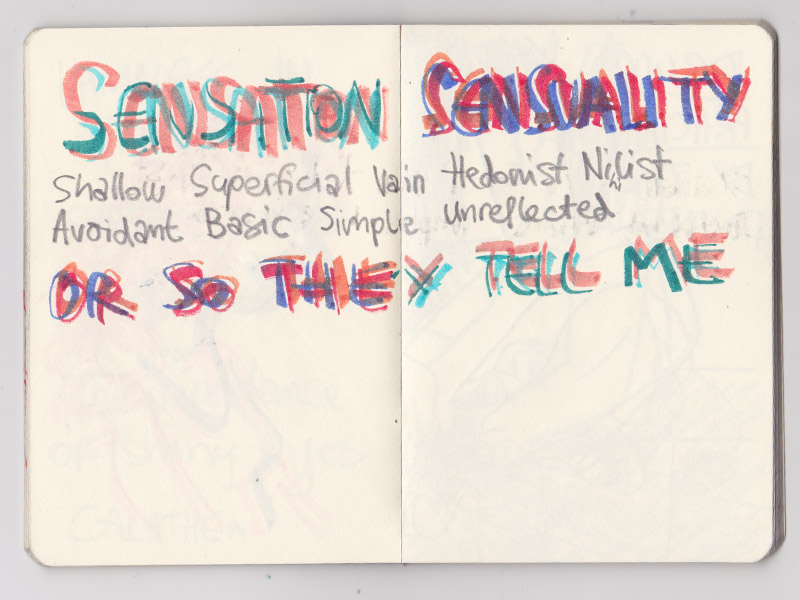 SENSATION SENSUALITY
Shallow Superficial Vain Hedonist Nihilist
Avoidant Basic Simple unreflected
OR SO THEY TELL ME